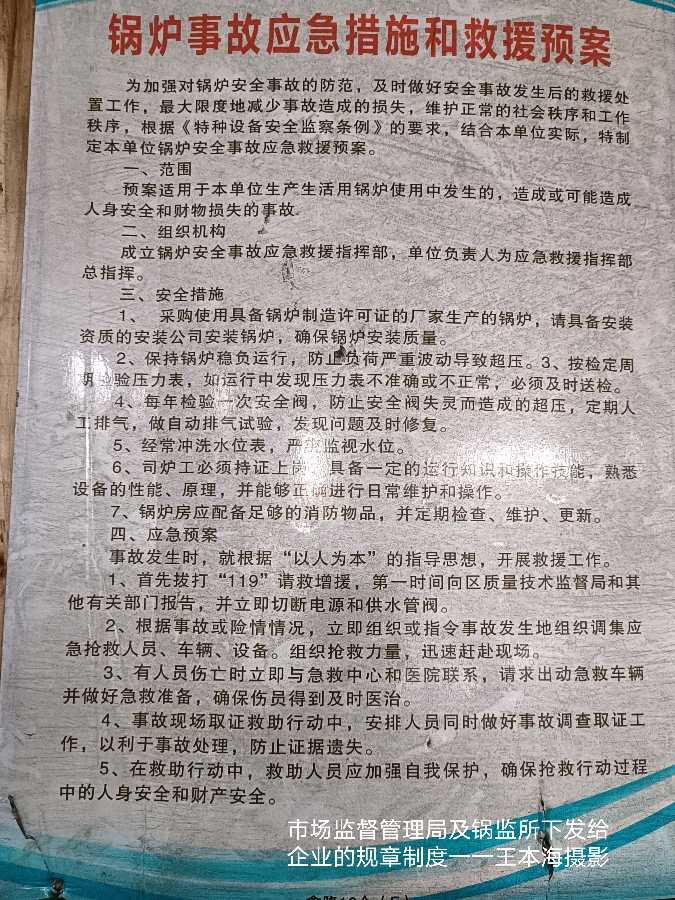 锅炉事故应急措施和救援预案
为加强对锅炉安全事故的防范，及时做好安全事故发生后的救援处
置工作，最大限度地减少事故造成的损失，维护正常的社会秩序和工作
秩序，根据《特种设备安全监察条例》的要求，结合本单位实际，特制
定本单位锅炉安全事故应急救援预案。
一、范围
预案适用于本单位生产生活用锅炉使用中发生的，造成或可能造成
人身安全和财物损失的事故.
二、组织机构
成立锅炉安全事故应急救援指挥部，单位负责人为应急救援指挥部
总指挥。
三、安全措施
1、 采购使用具备锅炉制造许可证的厂家生产的锅炉，请具备安装
资质的安装公司安装锅炉，确保锅炉安装质量。
2、保持锅炉稳负运行，防止负荷严重波动导致超压。3、按检定周
期 验压力表，如运行中发现压力表不准确或不正常，必须及时送检。
4、每年检验一次安全阀，防止安全阀失灵而造成的超压，定期人
工排气，做自动排气试验，发现问题及时修复。
5、经常冲洗水位表，严 监视水位。
6、司炉工必须持证上岗，具备一定的运行知识和操作技能，熟悉
设备的性能、原理，并能够正确进行日常维护和操作。
7、锅炉房应配备足够的消防物品，并定期检查、维护、更新。
四、应急预案
事故发生时，就根据“以人为本”的指导思想，开展救援工作。
1、首先拨打“119”请救增援，第一时间向区质量技术监督局和其
他有关部门报告，并立即切断电源和供水管阀。
2、根据事故或险情情况，立即组织或指令事故发生地组织调集应
急抢救人员、车辆、设备。组织抢救力量，迅速赶赴现场。
3、有人员伤亡时立即与急救中心和医院联系，请求出动急救车辆
并做好急救准备，确保伤员得到及时医治。
4、事故现场取证救助行动中，安排人员同时做好事故调查取证工
作，以利于事故处理，防止证据遗失。
5、在救助行动中，救助人员应加强自我保护，确保抢救行动过程
中的人身安全和财产安全。
市场监督管理局及锅监所下发给
企业的规章制度一一王本海摄影